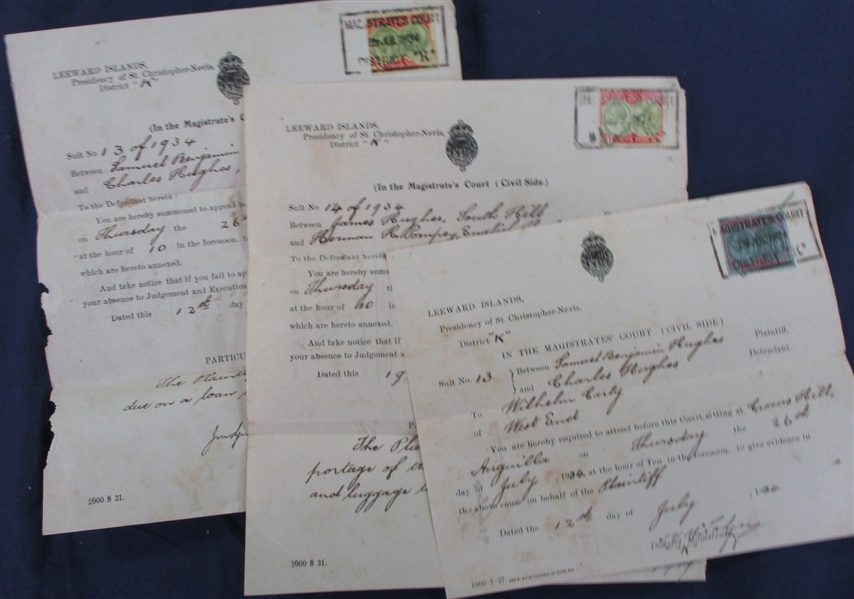 MAGISTRATES COURT
DISTRICT "K"
LEEWARD ISLANDS,
Presidency of St. Christopher-Nevis,
District "K"
(In the Magistrate's
Suit No 13 of 1934
Between Samuel Benjamin
and Charles Hughes,
To the Defendant hereto:
You are hereby summoned to appear
on Thursday the 26th
at the hour of 10 in the forenoon,
which are hereto annexed.
And take notice that if you fail to
your absence to Judgement and Execution
Dated this 12th day
PARTICUL
The Plaint
due on a loan
2000 8 31.
LEEWARD ISLANDS,
Presidency of St. Christopher-Nevis,
District "K"
(In the Magistrate's Court (Civil Side.)
Suit No 14 of 1934
Between James Hughes, South Hill
and Herman R. Pompey,
To the Defendant
You are hereby
on Thursday
at the hour of 10
which are hereto annexed.
And take notice
your absence to Judgement
Dated this
The
portage of
and luggage
2000 8 31.
MAGISTRATES COURT
LEEWARD ISLANDS,
Presidency of St. Christopher-Nevis.
District "K"
IN THE MAGISTRATES' COURT (CIVIL SIDE)
Suit No. 13 Between Samuel Benjamin Hughes Plaintiff,
and Charles Hughes Defendant.
To Wilhelm Carty
of West End
You are hereby required to attend before this Court sitting at Crocus Hill,
Anguilla on Thursday the 26th
day of July 1934 at the hour of Ten in the forenoon, to give evidence in
the above cause on behalf of the Plaintiff
Dated the 12th day of July 1934
District Magistrate
K